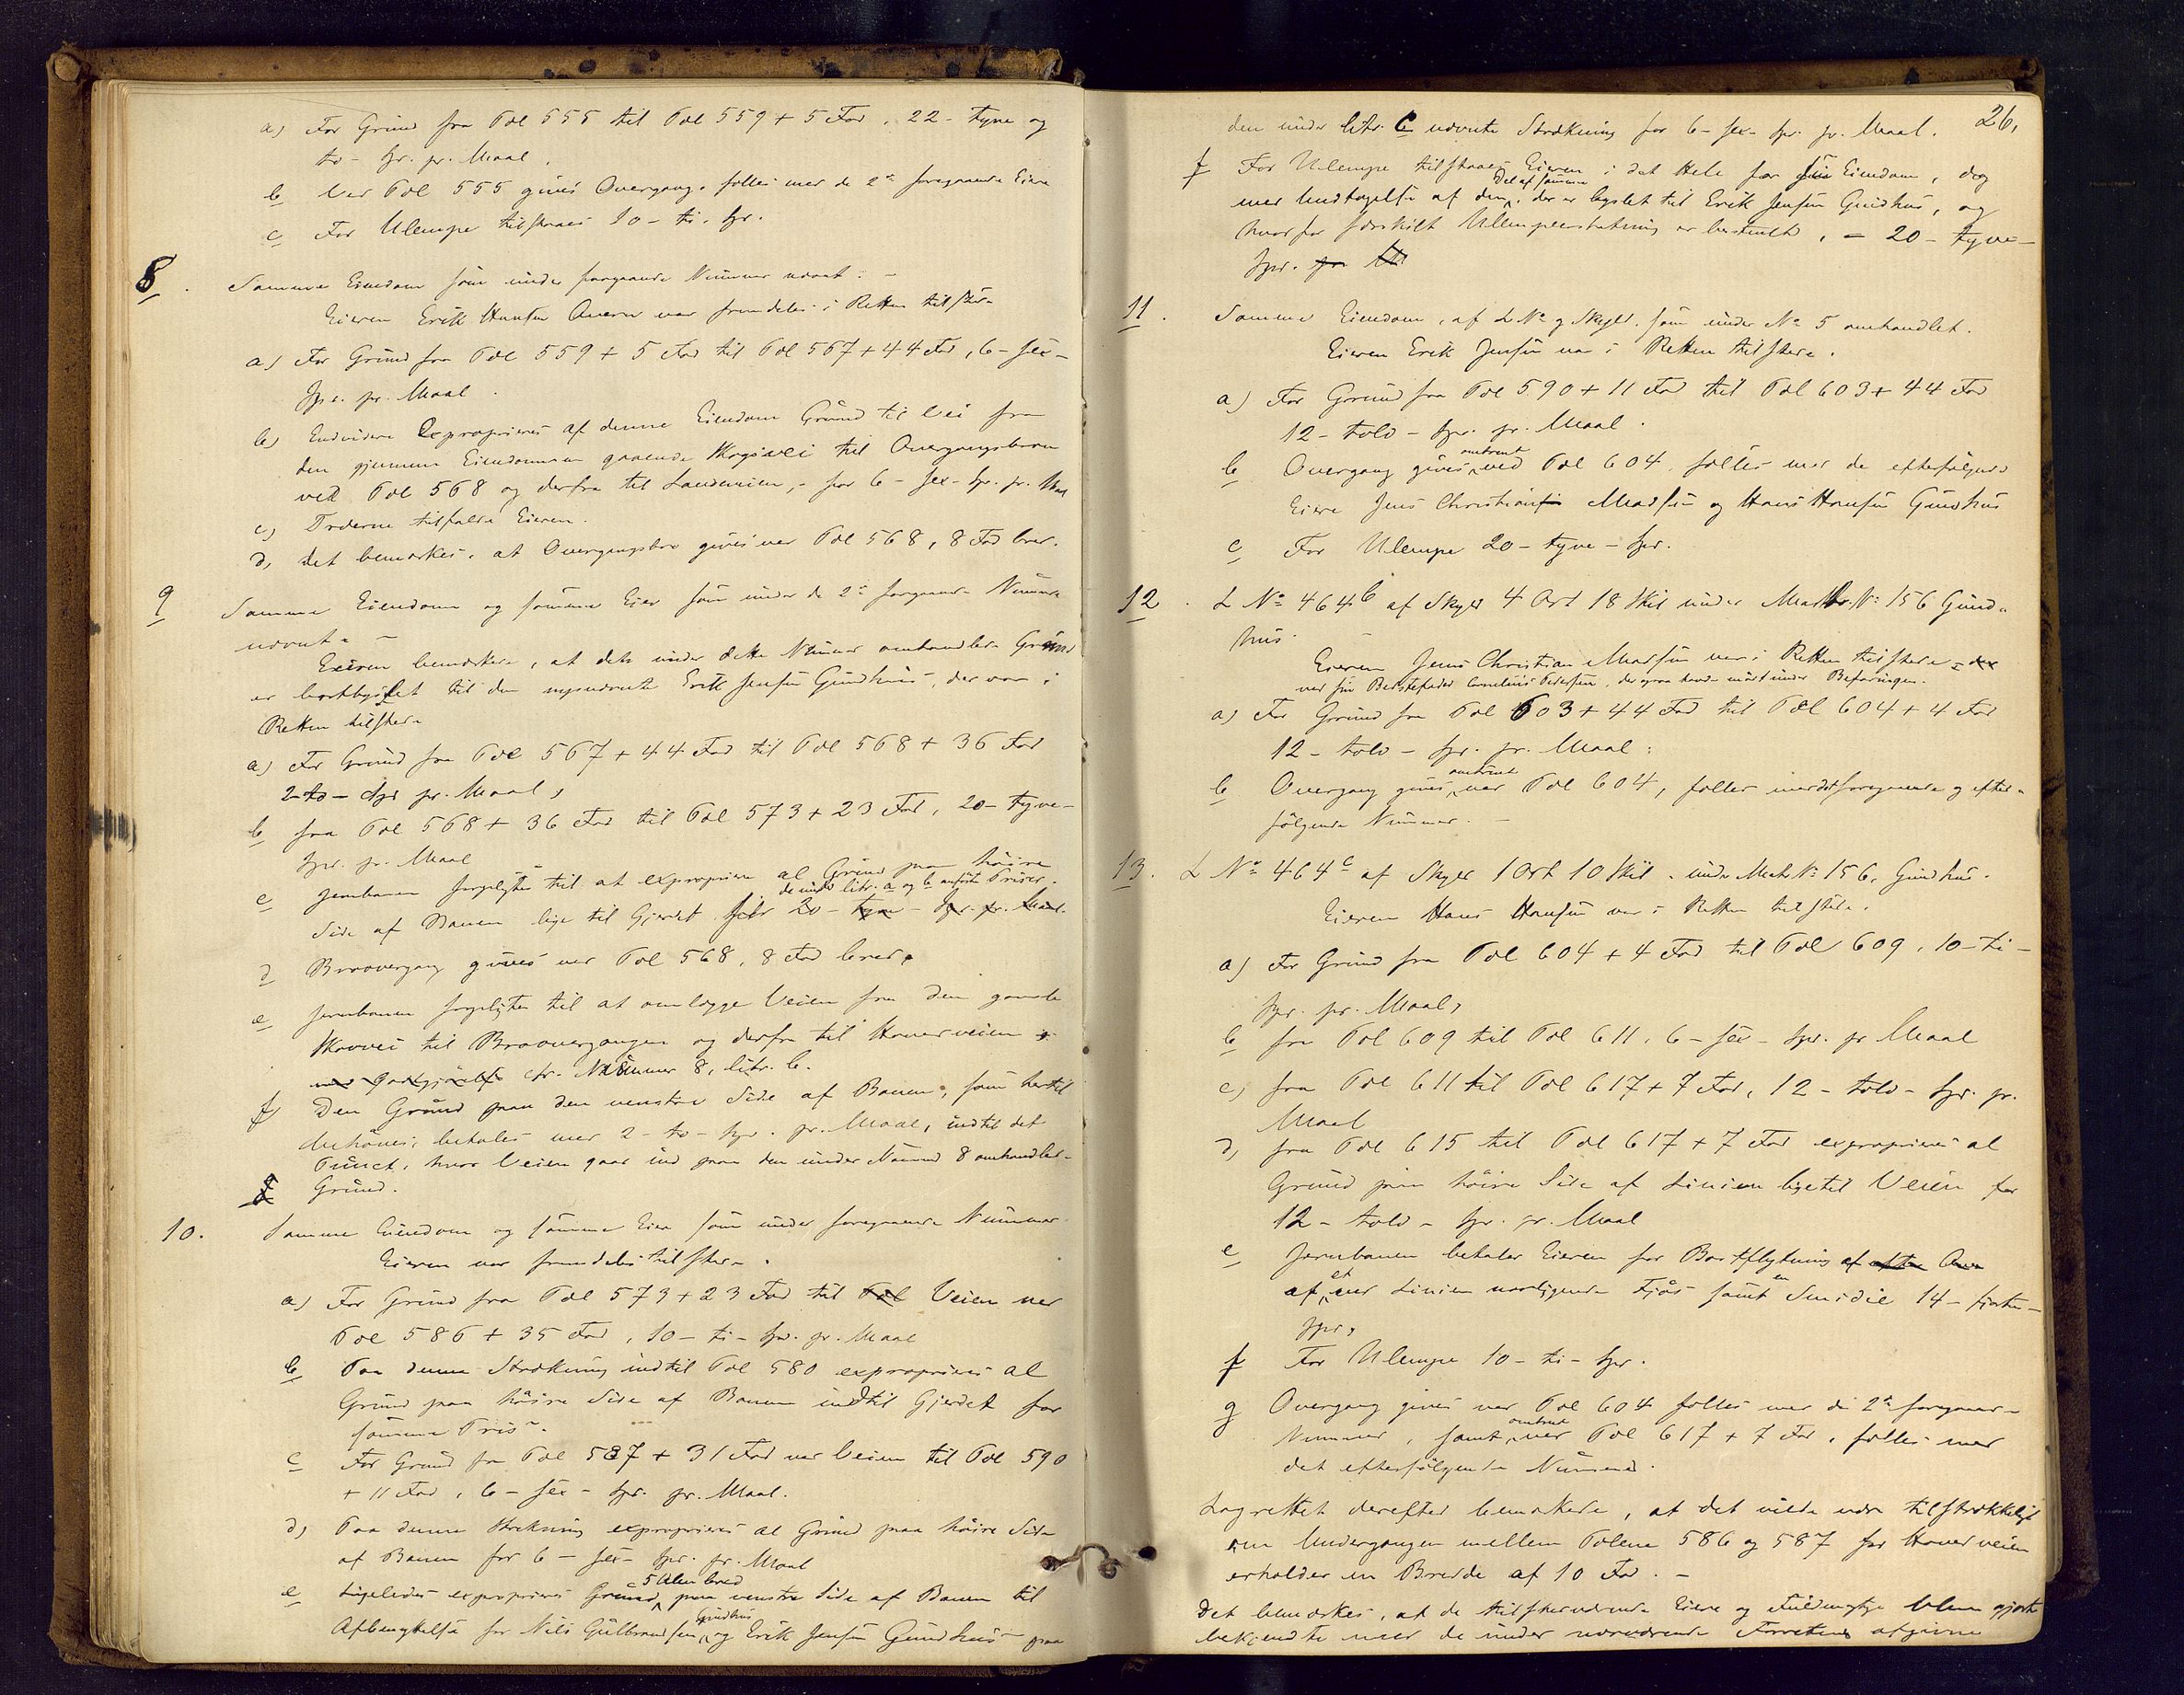 a) For Grund fra Pæl 555 til Pæl 559 + 5 Fod, 22 - tyve og
to - Spr. pr. Maal.
b Ved Pæl 555 gives Overgang, fælles med de 2de foregaaende Eiere
c For Ulempe tilstaaes 10 - ti - Spr.
8. Samme Eiendom som under foregaaende Nummer nævnt. -
Eieren Erik Hansen Aaern var fremdeles i Retten tilstede
a) For Grund fra Pæl 559 + 5 Fod til Pæl 567 + 44 Fod, 6 - sex -
Spr. pr. Maal.
b) Endvidere Exproprieres af denne Eiendom Grund til Vei fra
den gjennem Eiendommen gaaende Skogsvei til Overgangsbroen
ved Pæl 568 og derfra til Landeveien, - for 6 - sex - Spr. pr. Maal
c) Træerne tilfalde Eieren.
d, Det bemærkes, at Overgangsbro gives ved Pæl 568, 8 Fod bred.
9 Samme Eiendom og samme Eier som under de 2de foregaaende Numere
nævnt. -
Eieren bemærkede, at den under dette Nummer omhandlede Grund
er bortbygslet til den nysnævnte Erik Jensen Gundhus, der var i
Retten tilstede
a) For Grund fra Pæl 567 + 44 Fod til Pæl 568 + 36 Fod
2 - to - Spr pr. Maal,
b fra Pæl 568 + 36 Fod til Pæl 573 + 23 Fod, 20 - tyve -
Spr. pr. Maal
c Jernbanen forpligtes til at expropriere al Grund paa høire
de under litr. a og b anførte Priser.
Side af Banen lige til Gjerdet for 20 - tyve - Spr. pr. Maal.
d Broovergang gives ved Pæl 568, 8 Fod bred,
e Jernbanen forpligtes til at omlægge Veien fra den gamle
Skovvei til Broovergangen og derfra til Hovedveien
cfr. Nummer 8, litr. b.
f) Den Grund paa den venstre Side af Banen, som hertil
behøves, betales med 2 - to - Spr. pr. Maal, indtil det
Punct, hvor Veien gaar ind paa den under Nummer 8 omhandlede
Grund.
10. Samme Eiendom og samme Eier som under foregaaende Nummer
Eieren var fremdeles tilstede.
a) For Grund fra Pæl 573 + 23 Fod til Pæl Veien ved
Pæl 586 + 35 Fod, 10 - ti - Spr. pr. Maal
b Paa denne Strækning indtil Pæl 580 exproprieres al
Grund paa høire Side af Banen indtil Gjerdet for
samme Pris.
c For Grund fra Pæl 587 + 31 Fod ved Veien til Pæl 590
+ 11 Fod, 6 - sex - Spr. pr. Maal.
d) Paa denne Strækning exproprieres al Grund paa høire Side
af Banen for 6 - sex - Spr. pr. Maal
5 Alen bred
e Ligeledes exproprieres Grund paa venstre Side af Banen til
Gundhus
Afbenyttelse for Nils Gulbrandsen og Erik Jensen Gundhus paa
26,
den under litr. C nævnte Strækning for 6 - sex - Spr. pr. Maal.
f For Ulempe tilstaaes Eieren i det Hele for sin Eiendom, dog
Del af samme
med Undtagelse af den, der er bygslet til Erik Jensen Gundhus, og
hvorfor særskilt Ulempeerstatning er bestemt, - 20 - tyve -
Spr. pr. M
11. Samme Eiendom, af L No og Skyld, som under No 5 omhandlet.
Eieren Erik Jensen var i Retten tilstede.
a) For Grund fra Pæl 590 + 11 Fod til Pæl 603 + 44 Fod
12 - tolv - Spr. pr. Maal.
omtrent
b Overgang gives ved Pæl 604, fælles med de efterfølgende
Eiere Jens Christian Madsen og Hans Hansen Gundhus
c For Ulempe 20 - tyve - Spr.
12. L No 464b af Skyld 4 Ort 18 Skil under Matr. No 156 Gund-
hus.
Eieren Jens Christian Madsen var i Retten tilstede
ved sin Bedstefader Cornelius Pedersen, der ogsaa havde mødt under Befaringen.
a) For Grund fra Pæl 603 + 44 Fod til Pæl 604 + 4 Fod
12 - tolv - Spr. pr. Maal:
omtrent
b Overgang gives ved Pæl 604, fælles med det foregaaende og efter-
følgende Nummer. -
13. L No 464c af Skyld 1 Ort 10 Skil. under Matr No 156, Gundhus.
Eieren Hans Hansen var i Retten tilstede.
a) For Grund fra Pæl 604 + 4 Fod til Pæl 609, 10 - ti -
Spr. pr. Maal,
b fra Pæl 609 til Pæl 611, 6 - sex - Spr. pr Maal
c) fra Pæl 611 til Pæl 617 + 7 Fod, 12 - tolv - Spr. pr.
Maal
d, fra Pæl 615 til Pæl 617 + 7 Fod exproprieres al
Grund paa høire Side af Linien lige til Veien for
12 - tolv - Spr. pr. Maal
e Jernbanen betaler Eieren for Bortflytning af
et en
af ved Linien nærliggende Fjøs samt Smidie 14 - fjorten -
Spr,
f For Ulempe 10 - ti - Spr.
g Overgang gives ved Pæl 604 fælles med de 2de foregaaende
omtrent
Nummer, samt ved Pæl 617 + 7 Fod, fælles med
det efterfølgende Nummer.
Lagrettet derefter bemærkede, at det vilde være tilstrækkeligt
om Undergangen mellem Pælene 586 og 587 for Hovedveien
erholder en Bredde af 10 Fod. -
Det bemærkes, at de tilstedeværende Eiere og Fuldmægtige bleve gjorte
bekjendte med de under nærværende Forretning afgivne